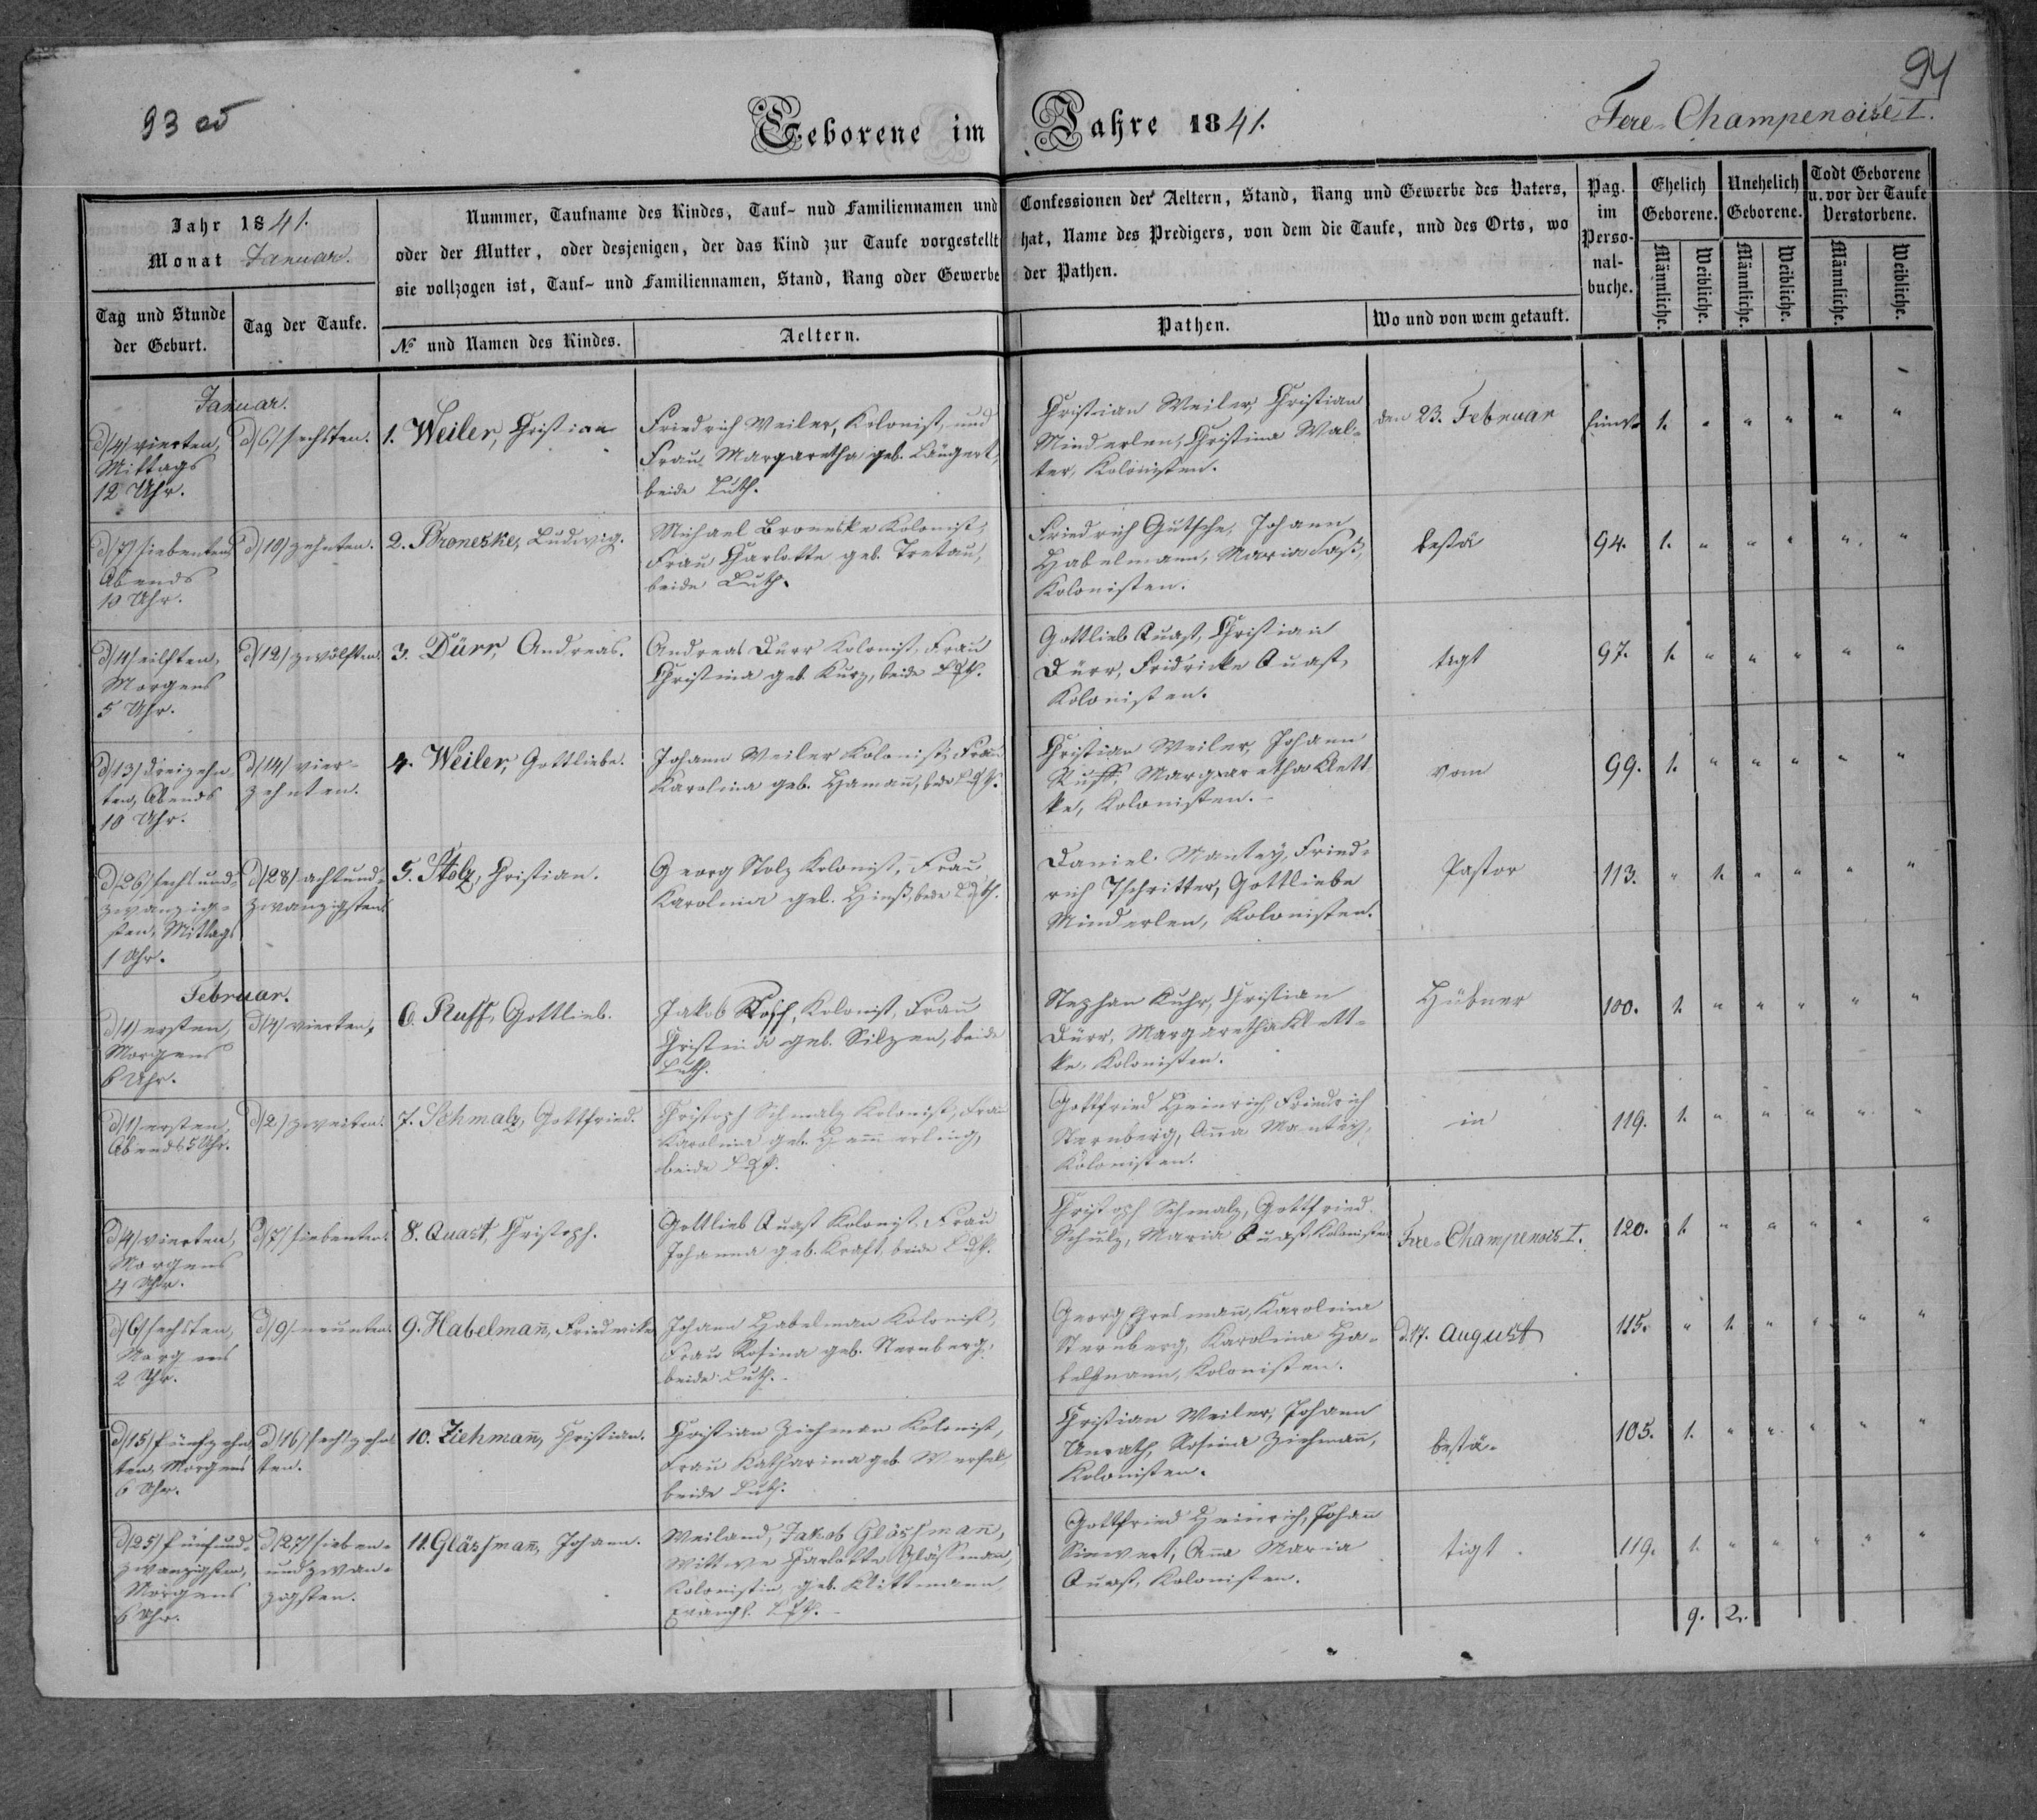 93 об
94
Geborene im Jahre 1841.
Fere-Champenoise I.
Jahr 1841.
Monat Januar.
Nummer, Taufname des Kindes, Tauf- nud Familiennamen und
oder der Mutter, oder desjenigen, der das Kind zur Taufe vorgestellt
sie vollzogen ist, Tauf- und Familiennamen, Stand, Rang oder Gewerbe
Confessionen der Aeltern, Stand, Rang und Gewerbe des Vaters,
hat, Name des Predigers, von dem die Taufe, und des Orts, wo
der Pathen.
Pag.
im
Perso-
nal-
buche.
Ehelich
Geborene.
Unehelich
Geborene.
Todt Geborene
u. vor der Taufe
Verstorbene.
Männliche.
Weibliche.
Männliche.
Weibliche.
Männliche.
Weibliche.
Tag und Stunde
der Geburt.
Tag der Taufe.
№ und Namen des Kindes.
Aeltern.
Pathen.
Wo und von wem getauft.
Januar.
d/4/ vierten,
Mittags
12 Uhr.
d/6/ sechsten.
1. Weiler, Christian
Friedrich Weiler, Kolonist, und
Frau Margaretha geb. Bäugert,
beide Luth.
Christian Weiler, Christian
Minderlen, Christina Wal-
ter, Kolonisten.
den 23. Februar
1.
d/7/ siebenten
Abends
10 Uhr.
d/10/ zehnten.
2. Broneske, Ludwig.
Michael Broneske Kolonist,
Frau Charlotte geb. Tretau,
beide Luth.
Friedrich Gutsche, Johann
Habelmann, Maria Faß,
Kolonisten.
bestä
94. 1.
d/11/ eilften,
Morgens
5 Uhr.
d/12/ zwölften.
3. Dürr, Andreas.
Andreas Dürr Kolonist, Frau
Christina geb. Kurz, beide Luth.
Gottlieb Quast, Christian
Dürr, Fridricke Quast,
Kolonisten.
tigt
97. 1.
d/13/ dreizehn-
ten, Abends
10 Uhr.
d/14/ vier-
zehnten.
4. Weiler, Gottliebe.
Johann Weiler Kolonist, Frau
Karolina geb. Hamañ, beide Luth.
Christian Weiler, Johann
Ruff, Margaretha Klett-
ke, Kolonisten.
vom
99. 1.
d/26/ sechsund-
zwanzig-
sten, Mittags
1 Uhr.
d/28/ achtund-
zwanzigsten
5. Stolz, Christian.
Georg Stolz Kolonist, Frau
Karolina geb. Hinß, beide Luth.
Daniel Mantey, Fried-
rich Tschritter, Gottliebe
Minderlen, Kolonisten.
Pastor
113. 1.
Februar.
d/1/ ersten,
Morgens
6 Uhr.
d/4/ vierten,
6. Ruff, Gottlieb.
Jakob Ruff, Kolonist, Frau
Christina geb. Silzen, beide
Luth.
Stephan Kuhr, Christian
Dürr, Margaretha Klett-
ke, Kolonisten.
Hübner
100. 1.
d/1/ ersten,
Abends 5 Uhr.
d/2/ zweiten.
7. Schmalz, Gottfried.
Christoph Schmalz Kolonist, Frau
Karolina geb. Hammerling,
beide Luth.
Gottfried Heinrich, Friedrich
Sternberg, Aña Mantey,
Kolonisten.
in
119. 1.
d/4/ vierten,
Morgens
4 Uhr.
d/7/ siebenten.
8. Quast, Christoph.
Gottlieb Quast Kolonist, Frau
Johanna geb. Kraft, beide Luth.
Christoph Schmalz, Gottfried
Schulz, Maria Quast, Kolonisten
Fere-Champenois I.
120. 1.
d/6/ sechsten,
Morgens
2 Uhr.
d/9/ neunten.
9. Habelmañ, Friedericke
Johann Habelman Kolonist,
Frau Rosina geb. Sternberg,
beide Luth.
Karolina
Sternberg, Karolina Ha-
belmann, Kolonisten.
d. 17. August
115. 1.
d/15/ fünfzehn
ten, Morgens
6 Uhr.
d/16/ sechzehn
ten.
10. Ziehmañ, Christian.
Christian Ziehman Kolonist,
Frau Katharina geb. Werfel,
beide Luth.
Christian Weiler, Johann
Unrath, Rosina Ziehmañ,
Kolonisten.
bestä-
105. 1.
d/25/ fünfund-
zwanzigsten,
Morgens
6 Uhr.
d/27/ sieben-
undzwan-
zigsten.
11. Gläsfmañ, Johann.
Weiland, Jakob Gläsfmañ,
Wittwe Charlotte Gläsfman,
Kolonistin, geb. Klittmann,
Evangl. Luth.
Gottfried Heinrich, Johan
Siewert, Aña Maria
Quast, Kolonisten.
tigt
119. 1.
9. 2.